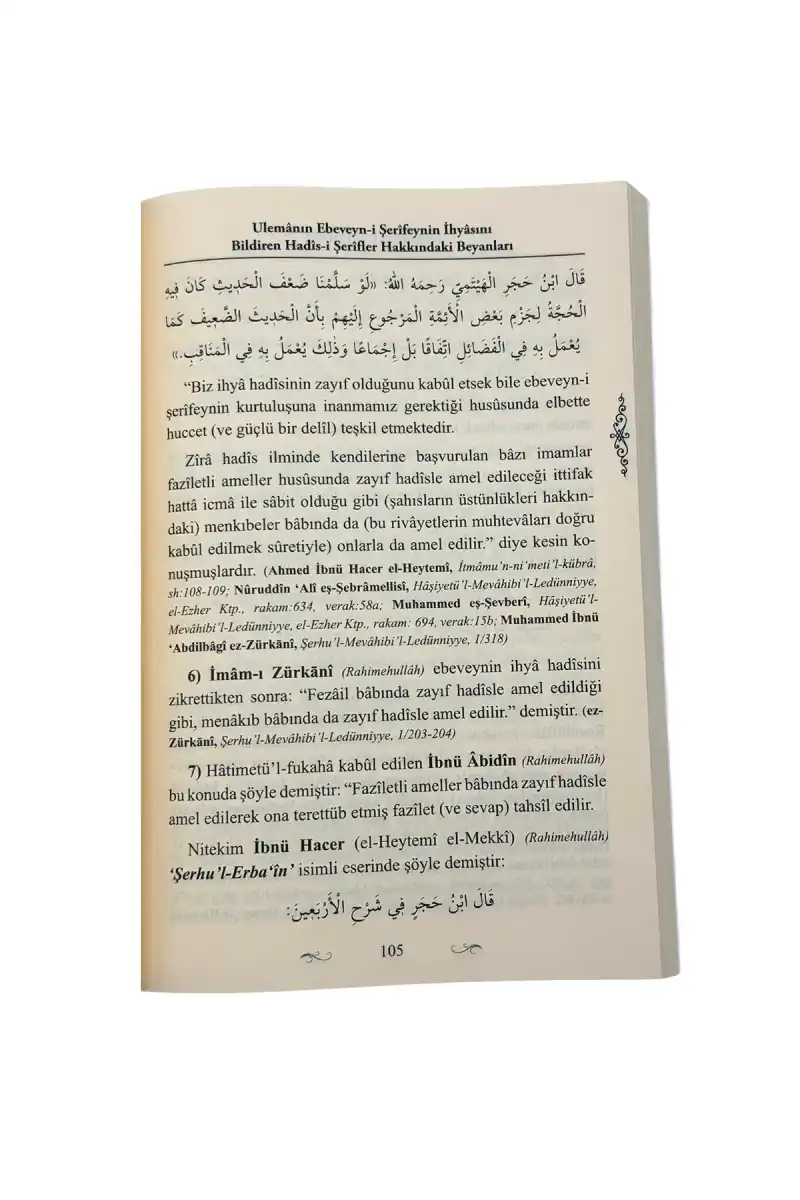 Ulemânın Ebeveyn-i Şerîfeynin İhyâsını
Bildiren Hadîs-i Şerîfler Hakkındaki Beyanları
قَالَ ابْنُ حَجَرٍ الْهَيْتَمِيِّ رَحِمَهُ اللّٰهُ: «لَوْ سَلَّمْنَا ضَعْفَ الْحَدِيثِ كَانَ فِيهِ
الْحُجَّةُ لِجَزْمِ بَعْضِ الْأَئِمَّةِ الْمَرْجُوعِ إِلَيْهِمْ بِأَنَّ الْحَدِيثَ الضَّعِيفَ كَمَا
يُعْمَلُ بِهِ فِي الْفَضَائِلِ اتِّفَاقًا بَلْ إِجْمَاعًا وَذٰلِكَ يُعْمَلُ بِهِ فِي الْمَنَاقِبِ.»
“Biz ihyâ hadîsinin zayıf olduğunu kabûl etsek bile ebeveyn-i
şerîfeynin kurtuluşuna inanmamız gerektiği husûsunda elbette
huccet (ve güçlü bir delîl) teşkil etmektedir.
Zîrâ hadîs ilminde kendilerine başvurulan bâzı imamlar
fazîletli ameller husûsunda zayıf hadîsle amel edileceği ittifak
hattâ icmâ ile sâbit olduğu gibi (şahısların üstünlükleri hakkın-
daki) menkıbeler bâbında da (bu rivâyetlerin muhtevâları doğru
kabûl edilmek sûretiyle) onlarla da amel edilir.” diye kesin ko-
nuşmuşlardır. (Ahmed İbnü Hacer el-Heytemî, İtmâmu’n-ni‘meti’l-kübrâ,
sh:108-109; Nûruddîn ‘Alî eş-Şebrâmellisî, Hâşiyetü’l-Mevâhibi’l-Ledünniyye,
el-Ezher Ktp., rakam:634, verak:58a; Muhammed eş-Şevberî, Hâşiyetü’l-
Mevâhibi’l-Ledünniyye, el-Ezher Ktp., rakam: 694, verak:15b; Muhammed İbnü
‘Abdilbâgî ez-Zürkānî, Şerhu’l-Mevâhibi’l-Ledünniyye, 1/318)
6) İmâm-ı Zürkānî (Rahimehullâh) ebeveynin ihyâ hadîsini
zikrettikten sonra: “Fezâil bâbında zayıf hadîsle amel edildiği
gibi, menâkıb bâbında da zayıf hadîsle amel edilir.” demiştir. (ez-
Zürkānî, Şerhu’l-Mevâhibi’l-Ledünniyye, 1/203-204)
7) Hâtimetü’l-fukahâ kabûl edilen İbnü Âbidîn (Rahimehullâh)
bu konuda şöyle demiştir: “Fazîletli ameller bâbında zayıf hadîsle
amel edilerek ona terettüb etmiş fazîlet (ve sevap) tahsîl edilir.
Nitekim İbnü Hacer (el-Heytemî el-Mekkî) (Rahimehullâh)
‘Şerhu’l-Erba‘în’ isimli eserinde şöyle demiştir:
قَالَ ابْنُ حَجَرٍ فِي شَرْحِ الْأَرْبَعِينَ:
105